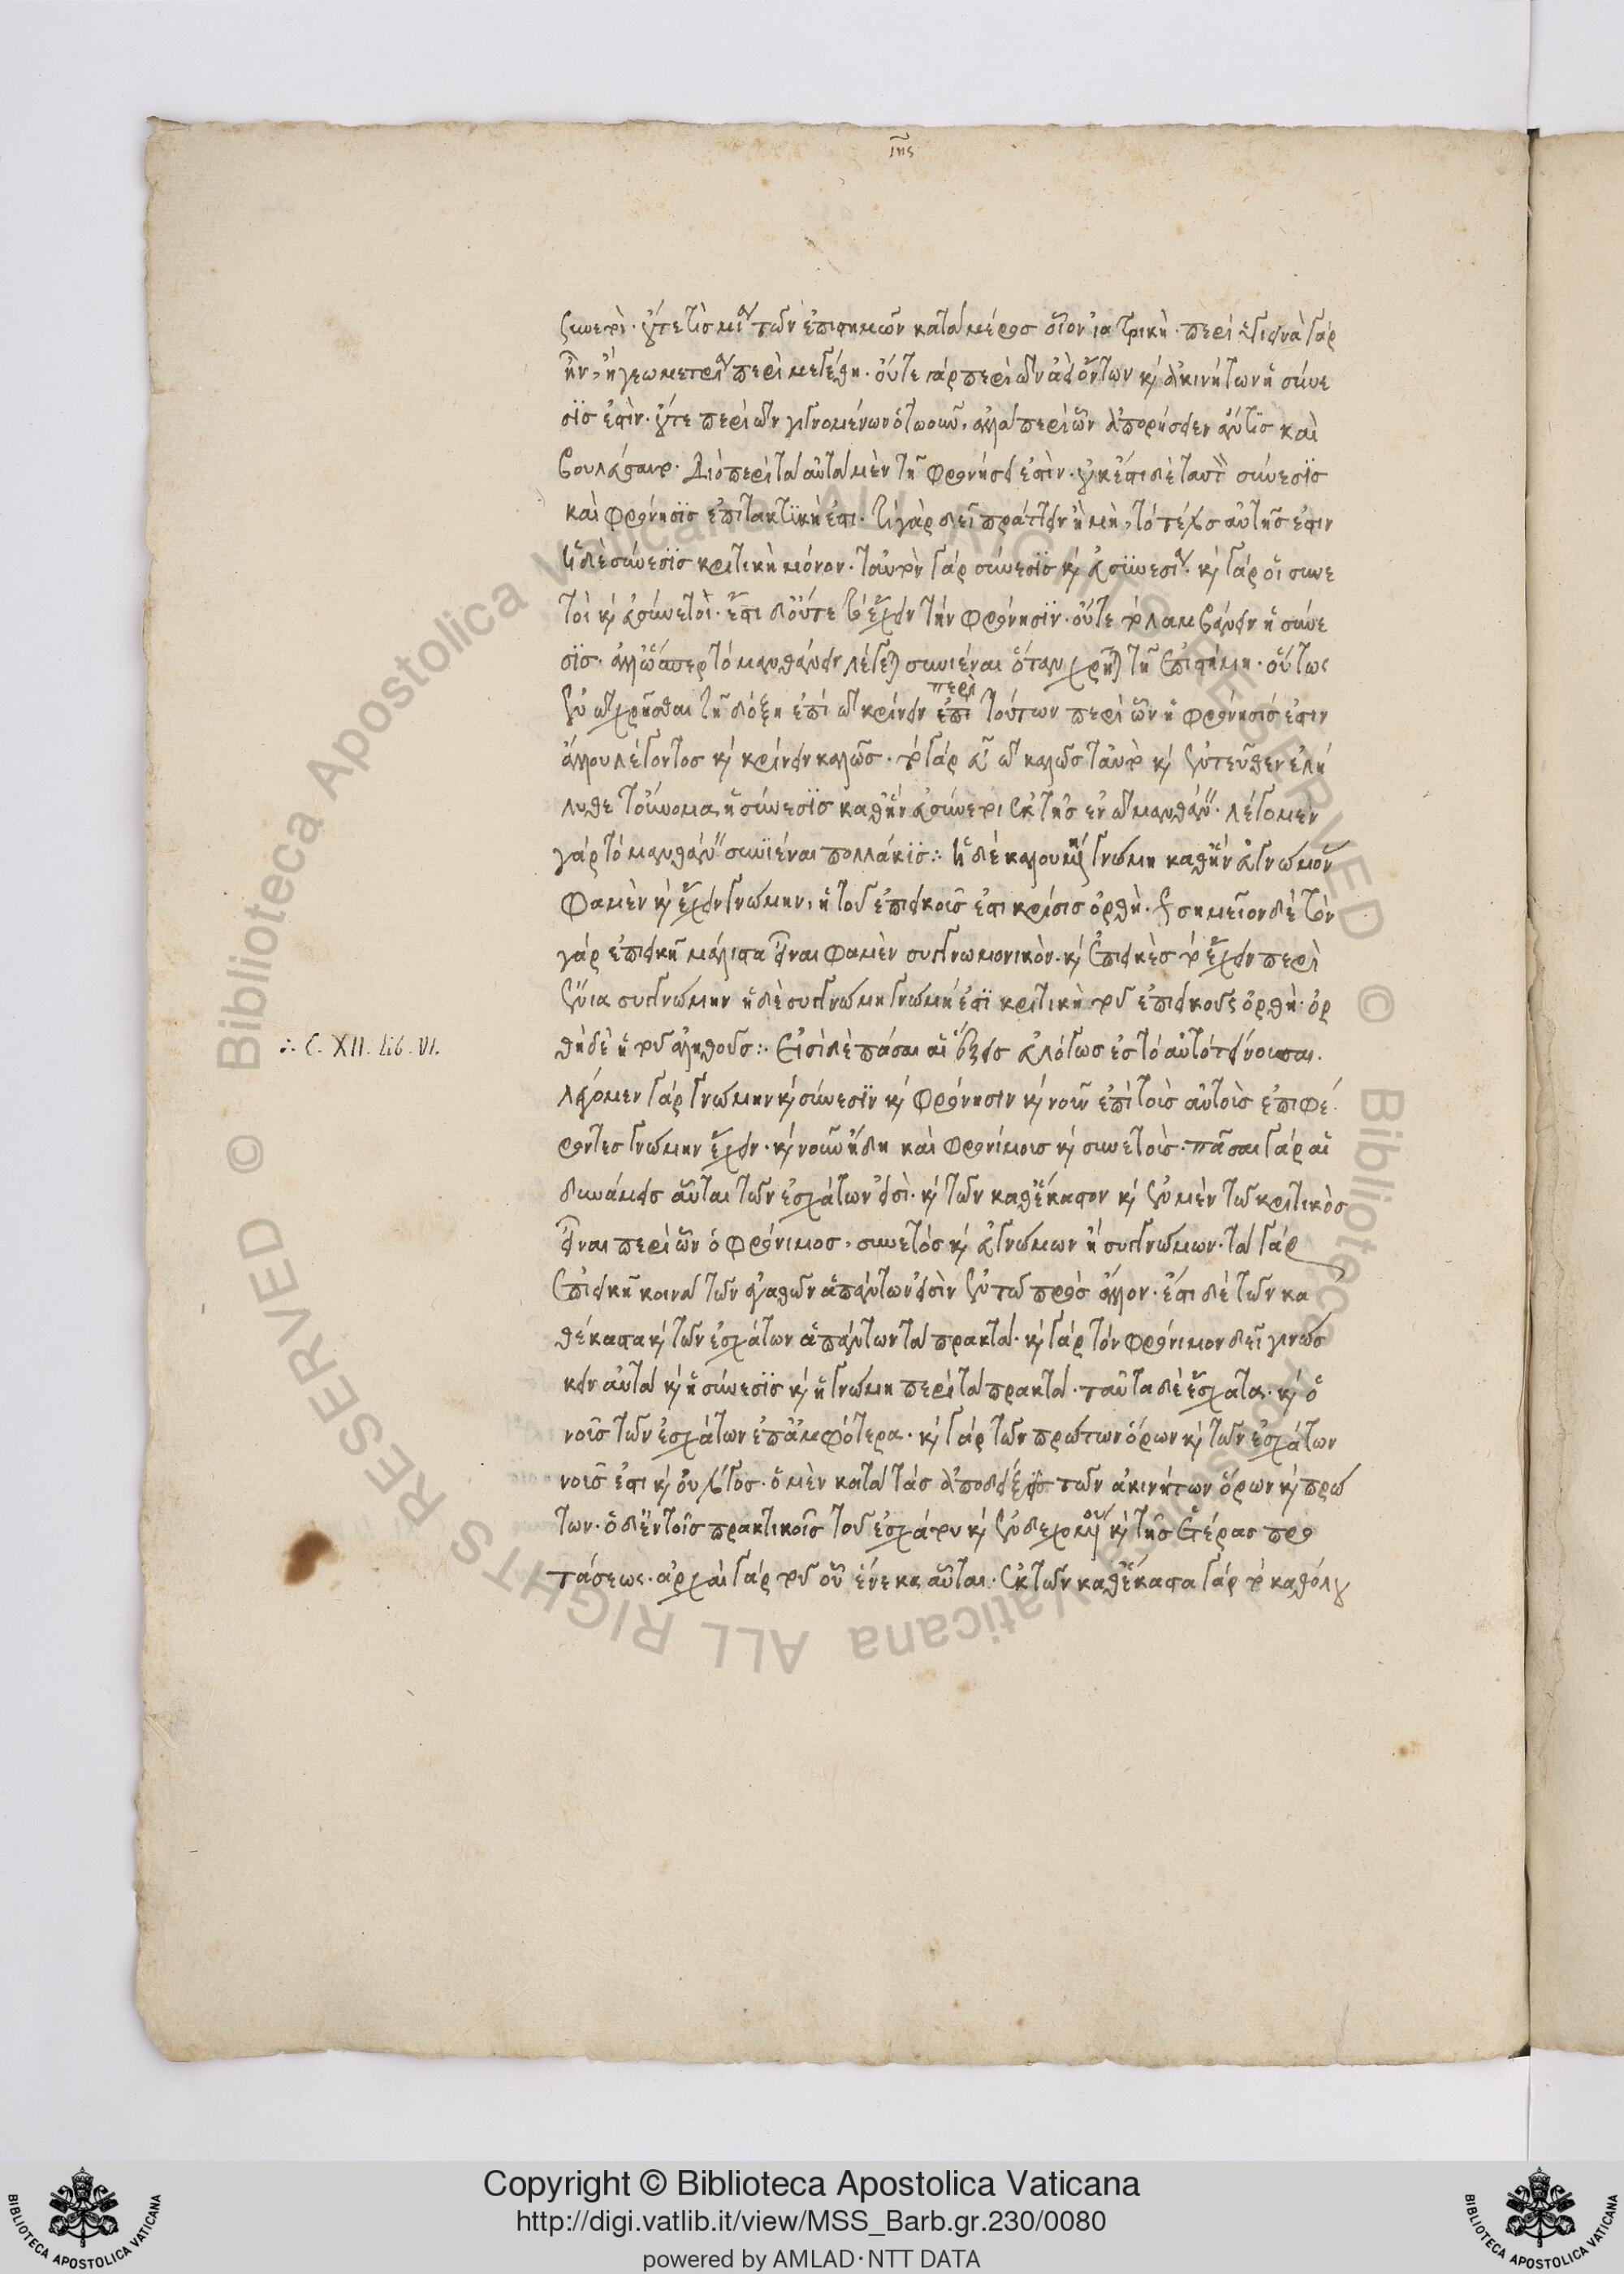 ιης
συνετοὶ· οὔτε τὶς μία τῶν ἐπιστημῶν κατὰ μέρος οἷον ἰατρικὴ· περὶ ὑγιεινὰ γάρ
ἦν, ἢ γεωμετρία περὶ μεγέθη· οὔτε γάρ περὶ τῶν ἀεὶ ὄντων καὶ ἀκινήτων ἡ σύνε
σϊς ἐστὶν· οὔτε περὶ τῶν γιγνομένων ὁτωοῦν, ἀλλὰ περὶ ὧν ἀπορήσειεν ἄν τις καὶ
βουλεύσαιτο· Διὸ περὶ τὰ αὐτὰ μὲν τῆ φρονήσει ἐστὶν· οὐκ ἔστι δὲ ταυτὸν σύνεσϊς
καὶ φρόνησϊς ἐπιτακτϊκὴ ἐστι· τί γὰρ δεῖ πράττειν ἢ μὴ, τὸ τέλος αὐτῆς ἐστιν
ἡ δὲ σύνεσϊς κριτικὴ μόνον· ταὐτὸν γάρ σύνεσϊς καὶ εὐσϋνεσία· καὶ γάρ οἱ συνε
τοὶ καὶ εὐσύνετοὶ· ἔστι δ' οὔτε τὸ ἔχειν τὴν φρόνησϊν· οὔτε τὸ λαμβάνειν ἡ σύνε
σϊς· ἀλλ' ὥσπερ τὸ μανθάνειν λέγεται συνιέναι ὅταν χρῆται τῆ ἐπιστήμη· οὕτως
ἐν τῶ χρῆσθαι τῆ δόξη ἐπὶ τὸ κρίνειν ἐπὶ τούτων περὶ ὧν ἡ φρόνησίς ἐστιν
περὶ
ἄλλου λέγοντος καὶ κρίνειν καλῶς· τὸ γάρ εὖ τῶ καλῶς ταὐτὸ καὶ ἐντεῦθεν ἐλή
λυθε τοὔνομα ἡ σύνεσϊς καθ' ἣν εὐσύνετοι ἐκ τῆς ἐν τῶ μανθάνειν· λέγομεν
γάρ τὸ μανθάνειν συνϊέναι πολλάκϊς:· ἡ δὲ καλουμένη γνώμη καθ' ἣν εὐγνώμονας
φαμὲν καὶ ἔχειν γνώμην, ἡ τοῦ ἐπιεικοῦς ἐστι κρίσις ὀρθὴ· σημεῖον δὲ τὸν
γάρ ἐπιεικῆ μάλιστα εἶναι φαμὲν συγγνωμονικὸν· καὶ ἐπιεικὲς τὸ ἔχειν περὶ
ἔνια συγγνώμην ἡ δὲ συγγνώμη γνώμη ἐστϊ κριτικὴ τοῦ ἐπιεικοῦς ὀρθὴ· ὀρ
θὴ δὲ ἡ τοῦ ἀληθοῦς:· Εἰσὶ δὲ πάσαι αἱ ἕξεις εὐλόγως εἰς τὸ αὐτὸ τείνουσαι·
∴ C. XII. lib. VI.
λέγομεν γάρ γνώμην καὶ σύνεσϊν καὶ φρόνησιν καὶ νοῦν ἐπὶ τοὺς αὐτοὺς ἐπιφέ
ροντες γνώμην ἔχειν· καὶ νοῦν ἤδη καὶ φρονίμους καὶ συνετοὺς· πᾶσαι γάρ αἱ
δυνάμεις αὗται τῶν ἐσχάτων εἰσὶ· καὶ τῶν καθ' ἕκαστον καὶ ἐν μὲν τῶ κριτικὸς
εἶναι περὶ ὧν ὁ φρόνιμος, συνετὸς καὶ εὐγνώμων ἢ συγγνώμων· τὰ γάρ
ἐπιεικῆ κοινὰ τῶν ἀγαθῶν ἁπάντων εἰσὶν ἐν τῶ πρὸς ἄλλον· ἔστι δὲ τῶν κα
θέκαστα καὶ τῶν ἐσχάτων ἁπάντων τὰ πρακτὰ· καὶ γάρ τὸν φρόνιμον δεῖ γινώσ
κειν αὐτὰ καὶ ἡ σύνεσϊς καὶ ἡ γνώμη περὶ τὰ πρακτὰ· ταῦτα δὲ ἔσχατα· καὶ ὁ
νοῦς τῶν ἐσχάτων ἐπ' ἀμφότερα· καὶ γάρ τῶν πρώτων ὅρων καὶ τῶν ἐσχάτων
νοῦς ἐστι καὶ οὐ λόγος· ὁ μὲν κατὰ τὰς ἀποδείξεις τῶν ἀκινήτων ὅρων καὶ πρώ
των· ὁ δ' ἐν τοῖς πρακτικοῖς τοῦ ἐσχάτου καὶ ἐνδεχομένου καὶ τῆς ἑτέρας προ
τάσεως· ἀρχαὶ γάρ τοῦ οὗ ἕνεκα αὗται· ἐκ τῶν καθ' ἕκαστα γάρ τὸ καθόλου
Copyright © Biblioteca Apostolica Vaticana
http://digi.vatlib.it/view/MSS_Barb.gr.230/0080
powered by AMLAD·NTT DATA
BIBLIOTECA APOSTOLICA VATICANA
BIBLIOTECA APOSTOLICA VATICANA
© Biblioteca Apostolica Vaticana ALL RIGHTS RESERVED © Biblioteca Apostolica Vaticana ALL RIGHTS RESERVED